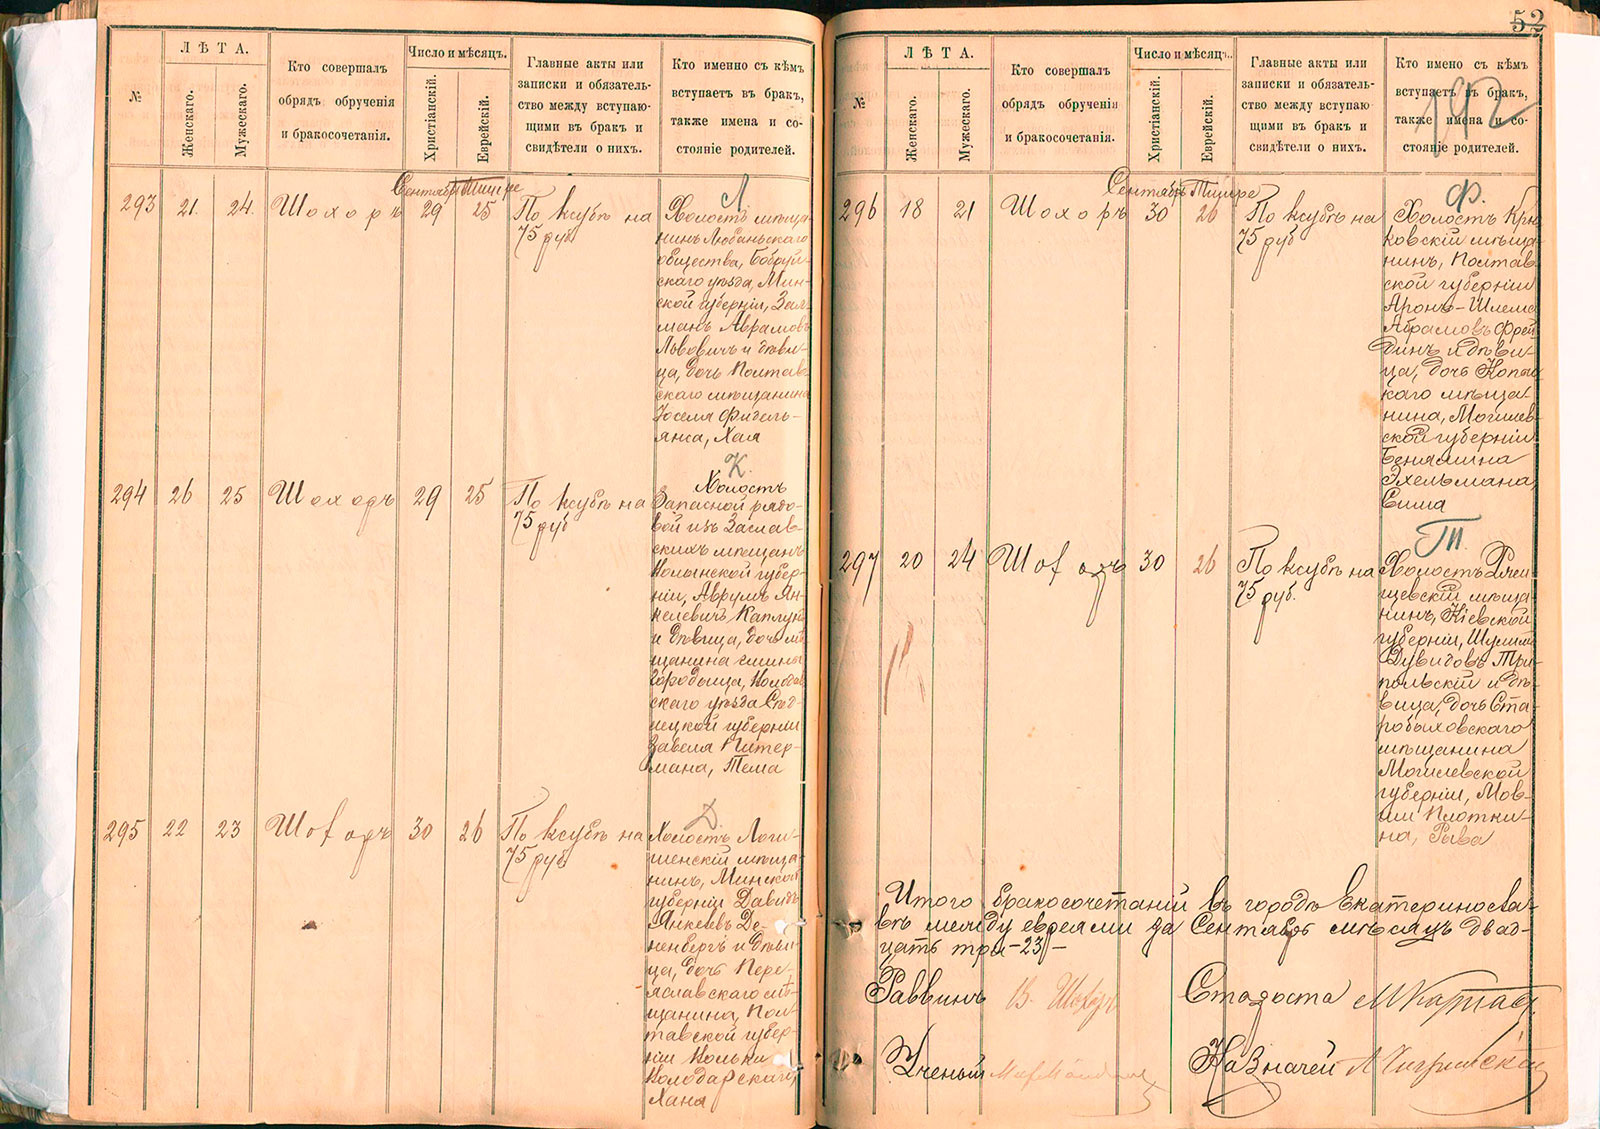 №
ЛѢТА.
Женскаго.
Мужескаго.
Кто совершалъ
обрядъ обрученія
и бракосочетанія.
Число и мѣсяцъ.
Христіанскій.
Еврейскій.
Главные акты или
записки и обязатель-
ство между вступаю-
щими въ бракъ и
свидѣтели о нихъ.
Кто именно съ кѣмъ
вступаетъ въ бракъ,
также имена и со-
стояніе родителей.
Сентябрь Тишре
293 21. 24. Шохоръ 29 25 По ксубѣ на
75 руб.
Л.
Холостъ мѣща-
нинъ Любаньскаго
общества, Бобруй-
скаго уѣзда, Мин-
ской губерніи, Зал-
манъ Аврамовъ
Львовичъ и дѣви-
ца, дочь Полтав-
скаго мѣщанина
Іоселя
Хая
294 26 25 Шохоръ 29 25 По ксубѣ на
75 руб
К.
Холостъ
Запасной рядо-
вой изъ Заслав-
скихъ мѣщанъ
Волынской губер-
ніи, Аврумъ Ян-
келевичъ Каплунъ
и дѣвица, дочь мѣ-
щанина гмины
Городыща,
скаго уѣзда Сѣд-
лецкой губерніи
Завеля Питер-
мана, Тема
295 22 23 Шохоръ 30 26 По ксубѣ на
75 руб.
Д.
Холостъ Логи-
шенскій мѣща-
нинъ, Минской
губерніи Давидъ
Янкевъ До-
ненбергъ и дѣви-
ца, дочь Пере-
яславскаго мѣ-
щанина, Пол-
тавской губер-
ніи Волька
Володарскаго,
Хана
52
192
№
ЛѢТА.
Женскаго.
Мужескаго.
Кто совершалъ
обрядъ обрученія
и бракосочетанія.
Число и мѣсяцъ.
Христіанскій.
Еврейскій.
Главные акты или
записки и обязатель-
ство между вступаю
щими въ бракъ и
свидѣтели о нихъ.
Кто имено съ кѣмъ
вступаетъ въ бракъ,
также имена и со-
стояніе родителей.
Сентябрь Тишре
296 18 21 Шохоръ 30 26 По ксубѣ на
75 руб
Ф.
Холостъ Крю
ковскій мѣща-
нинъ, Полтав-
ской губерніи
Аронъ-Шлема
Абрамовъ Фрей-
динъ и дѣви-
ца, дочь Копы
каго мѣща-
нина, Могилев-
ской губерніи
Беньямина
Эхельмана,
Сима
297 20 24 Шохоръ 30 26 По ксубѣ на
75 руб.
Т.
Холостъ Ржи
щевскій мѣща-
нинъ, Кіевской
губерніи, Шулимъ
Дувидовъ Три-
польскій и дѣ-
вица, дочь Ста-
робыховскаго
мѣщанина
Могилевской
губерніи, Мов-
ши Плотки-
на, Рыва
Итого бракосочетаній въ городѣ Екатериносла-
вѣ между евреями за Сентябрь мѣсяцъ двад-
цать три -23-
Раввинъ В. Шохоръ Староста М Картав
Ученый Казначей А Чигринскій